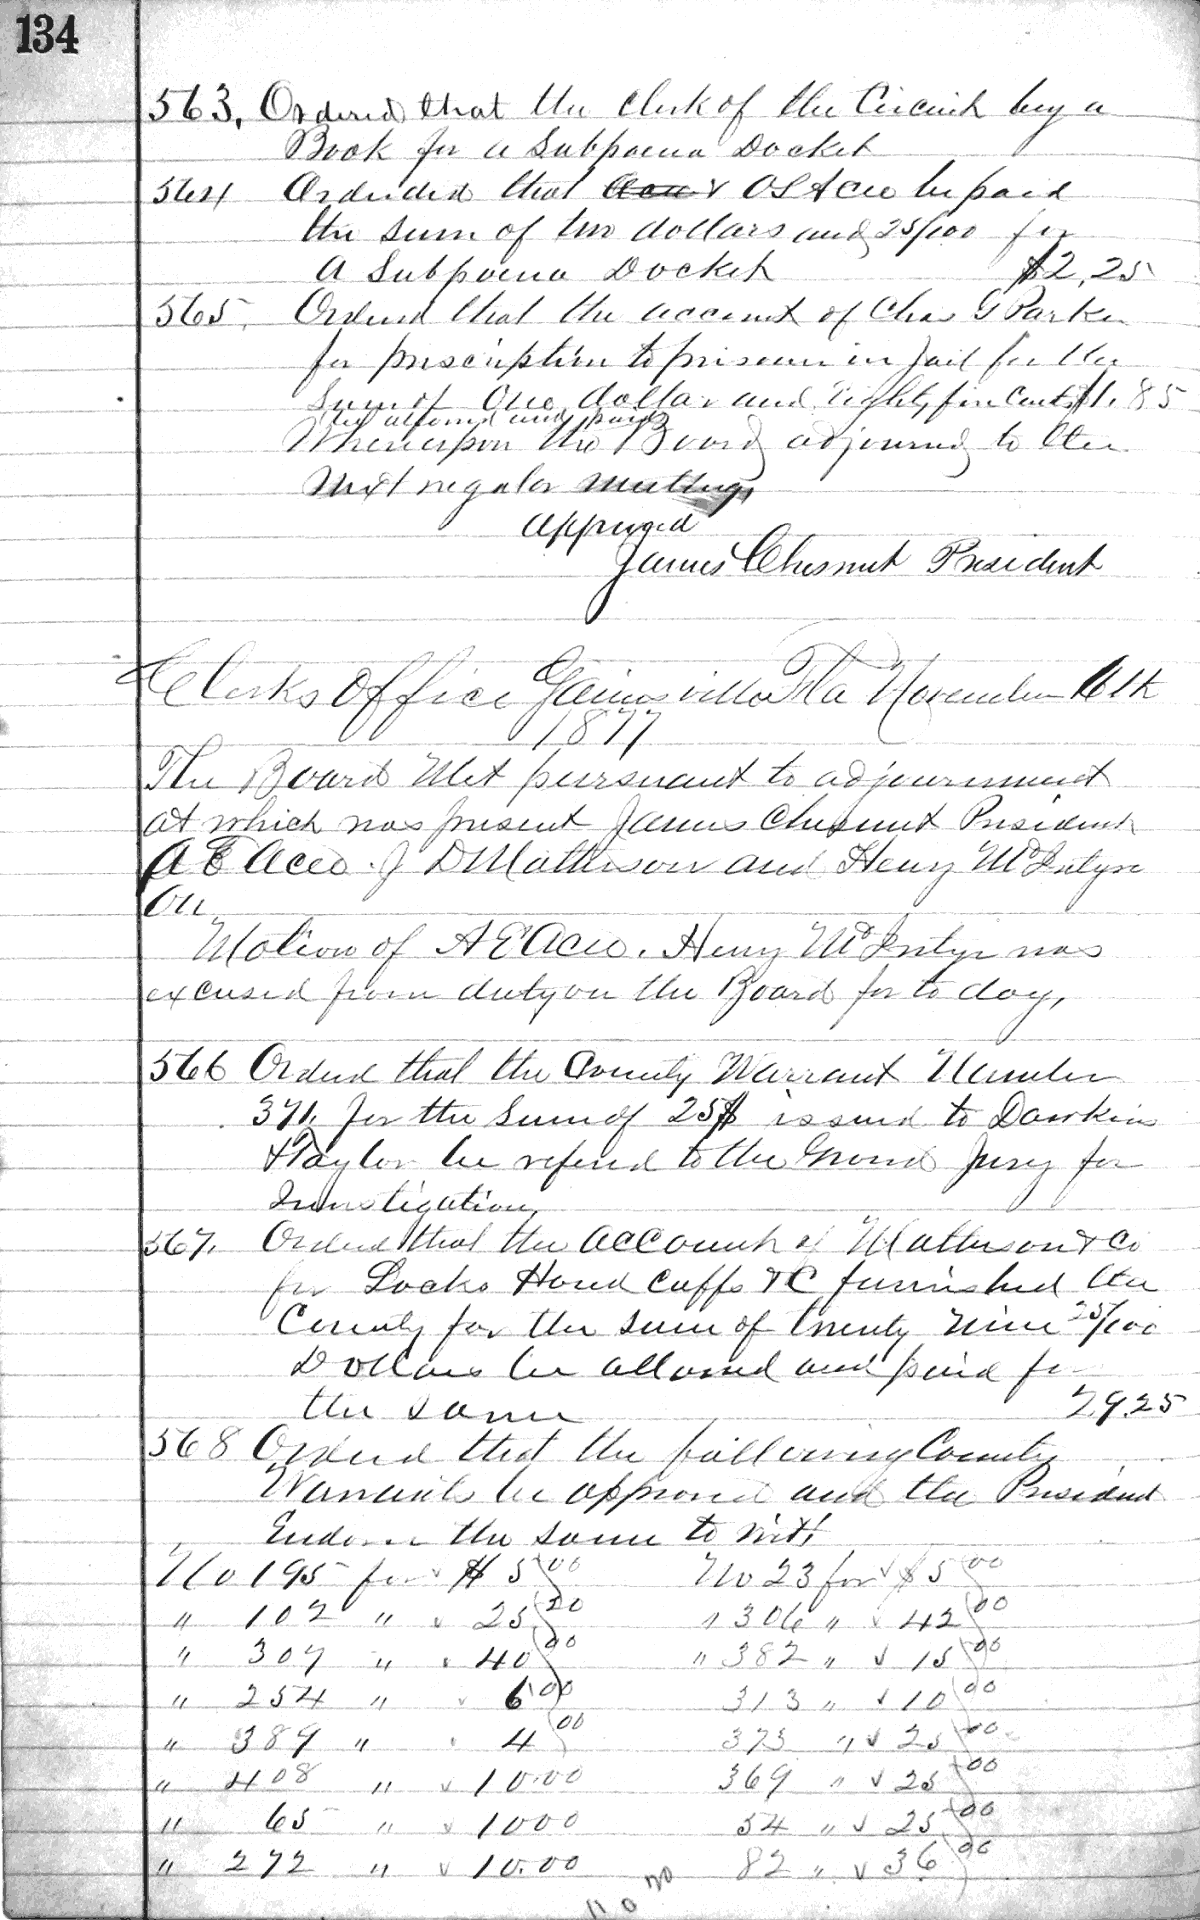 134
563. Ordered that the Clerk of the Circuit buy a
Book for a Subpoena Docket
564 Orderded that & OS Acee be paid
the sum of two dollars and 25/100 for
a Subpoena Docket $2,25
565. Ordered that the account of Chas G Parker
for prescription to prisoner in Jail for the
sum of One dollar and Eighty five cents $1.85
be allowed and paid
Whereupon the Board adjourned to the
next regular meeting,
Approved
James Chesnut President
Clerks Office Gainesville Fla November 6th
1877
The Board Met pursuant to adjournment
at which was present James Chesnut President
A E Acee. J D Matheson and Henry McIntyre
On
Motion of A E Acee. Henry McIntyre was
excused from duty on the Board for to day,
566 Ordered that the County Warrant Number
371. for the Sum of 25$ issued to Dawkins
& Taylor be refered to the Grand Jury for
Investigation,
567. Ordered that the account of Matheson & Co
for Locks Hand cuffs &C furnished the
County for the sum of twenty Nine 25/100
Dollars be allowed and paid for
the same 29.25
568 Ordered that the following County
Warrants be approved and the President
Endorse the same to wit:
No 195 for $ 5 00 No 23 for $5 00
" 102 " 25 20 " 306 " 42 00
" 307 " 40 00 " 382 " 15 00
" 254 " 6 00 313 " 10 00
" 389 " 4 00 373 " 25 00
" 408 " 10.00 369 " 25 00
" 65 " 1000 54 " 25 00
" 272 " 10.00 82 " 36 00